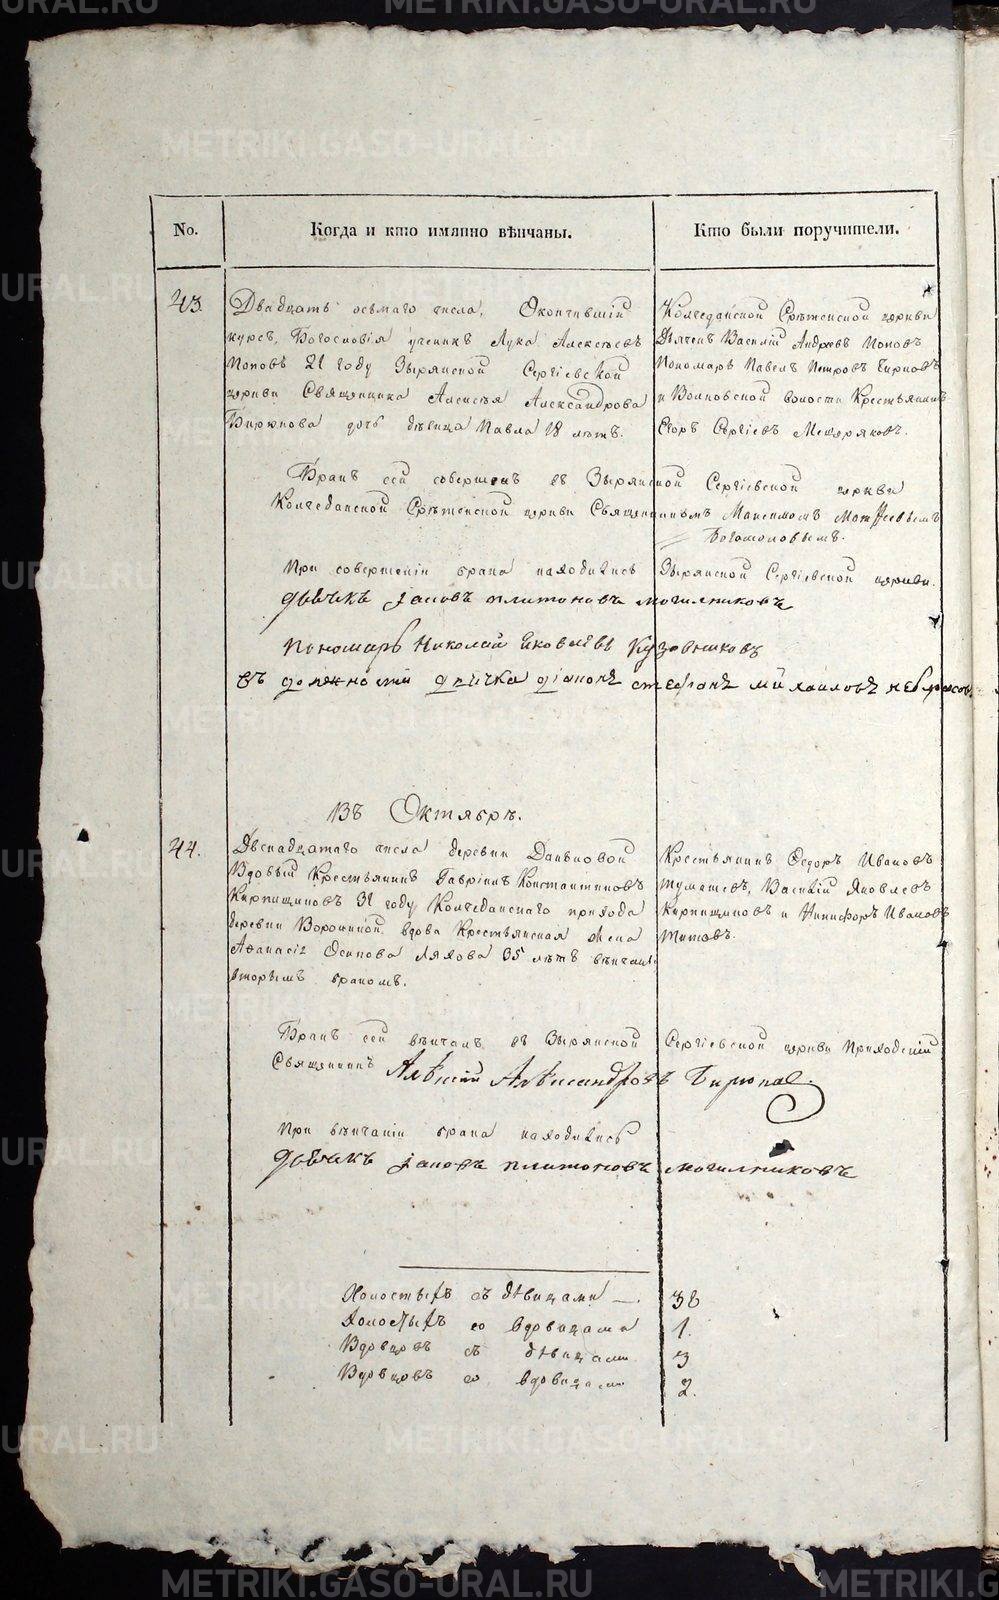 METRIKI.GASO-URAL.RU
No.
Когда и кто имянно вѣнчаны.
Кто были поручители.
43.
Двадцать осьмаго числа, Окончившій
курсъ, Богословія ученикъ Лука Алексѣевъ
Поповъ 21 году Зырянской Сергіевской
церкви Священника Алексѣя Александрова
Бирюкова дочь дѣвица Павла 18 лѣтъ.
Колчеданской Срѣтенской церкви
Дьячекъ Василій Андреевъ Поповъ
Пономарь Павелъ Петровъ
и Волковской волости Крестьянинъ
Егоръ Сергіевъ Мещеряковъ.
Бракъ сей совершенъ въ Зырянской Сергіевской церкви
Колчеданской Срѣтенской церкви Священникомъ Максимомъ Матѳеевымъ
Богомоловымъ.
При совершеніи брака находились Зырянской Сергіевской церкви.
дьячекъ Іаковъ Платоновъ Могилниковъ
пономарь Николай Яковлевъ Кузовниковъ
въ должности дьячка діаконъ Стефанъ Михаиловъ Некрасовъ
Въ Октябрѣ.
44.
Двенадцатаго числа деревни Даньковой
Вдовый Крестьянинъ Гаврiилъ Константиновъ
Кирпищиковъ 31 году Колчеданскаго прихода
деревни Ворожиной вдова Крестьянская Жена
Аѳанасія Осипова Ляхова 35 лѣтъ вѣнчаны
вторымъ бракомъ.
Крестьянинъ Ѳедоръ Ивановъ
Тумашевъ, Василій Яковлевъ
Кирпищиковъ и Никифоръ Ивановъ
Титовъ.
Бракъ сей вѣнчалъ въ Зырянской Сергіевской церкви Приходскій
Священникъ Алѣксій Алѣксандровъ Бирюковъ.
При вѣнчаніи брака находились
дьячекъ Іаковъ Платоновъ Могилниковъ
Холостыхъ съ дѣвицами —. 38
Холостыхъ со вдовицами 1.
Вдовцовъ съ дѣвицами 3
Вдовцовъ со вдовицами 2.
METRIKI.GASO-URAL.RU